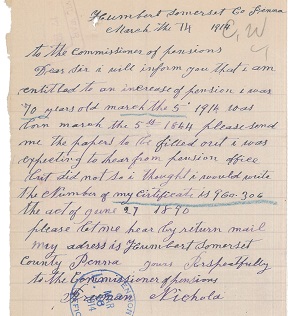 Humbert Somerset Co Penna
March the 14 1914
to the Commissioner of pensions
Dear Sir i will inform you that i am
entitled to an increase of pension i was
70 years old march the 5th 1914 was
born march the 5th 1844 please send
me the papers to be filled out i was
expecting to hear from pension office
but did not so i thought i would write
the Number of my Cirtificate is 960.306
the act of june 27 1890
please let me hear by return mail
my adress is Humbert Somerset
County Penna yours respectfully
to the Commissioner of pensions
Freeman Nichola